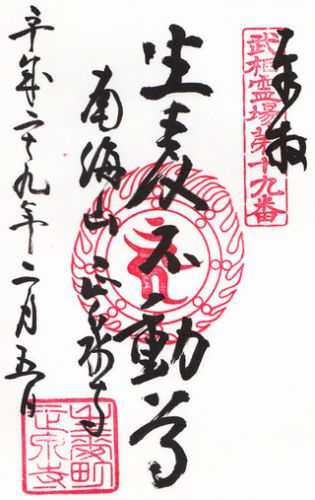 奉拝
武相霊場第十九番
生麦不動尊
南海山 正泉寺
平成二十九年二月五日
生麦町
正泉寺